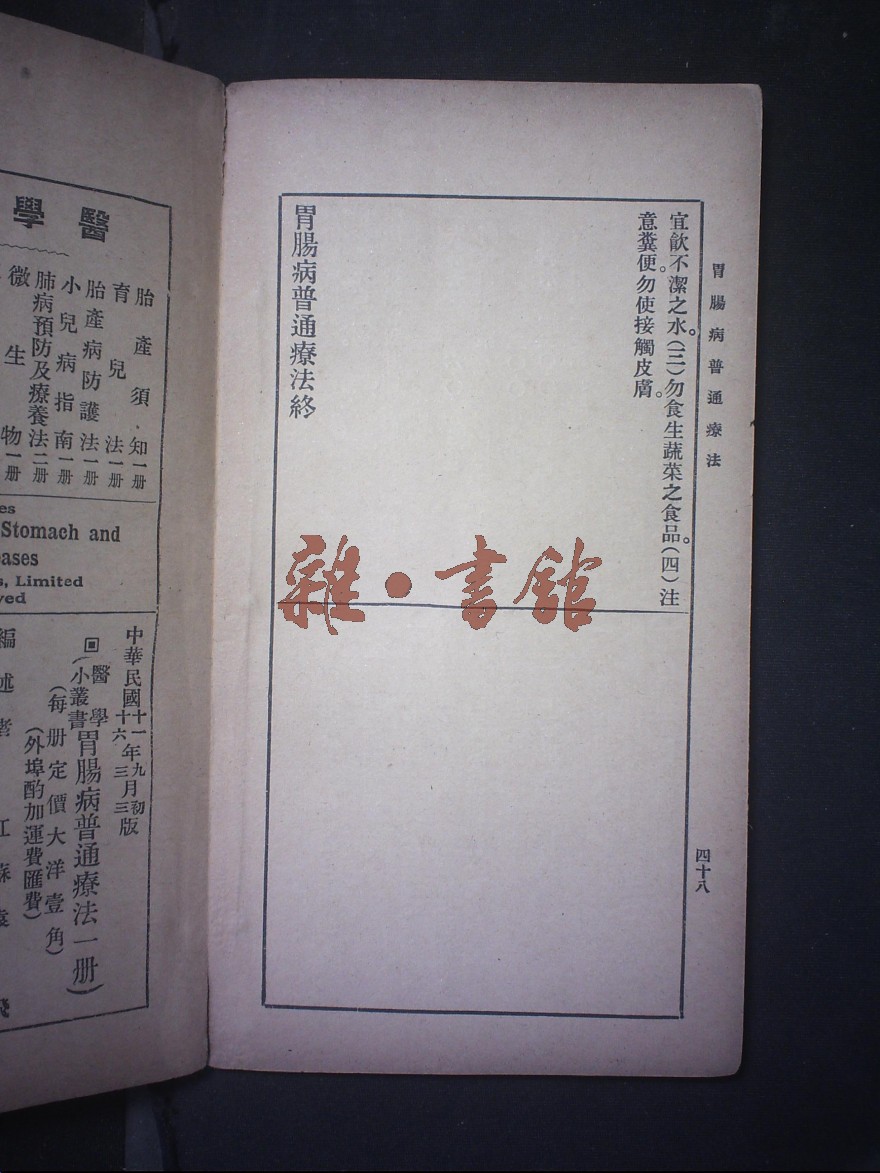 胃腸病普通療法
宜飮不潔之水。(三)勿食生蔬菜之食品。(四)注
意糞便。勿使接觸皮膚。
胃腸病普通療法終
四十八
雜·書館
醫學
胎產須知一册
育兒法一册
胎產病防護法一册
小兒病指南一册
肺病預防及療養法二册
微生物一册
es
Stomach and
eases
s, Limited
ved
中華民國十一年九月初版
十六 三 三
回(醫學小叢書)胃腸病普通療法一册)
(每册定價大洋壹角)
(外埠酌加運費匯費)
編述者 江蘇袁